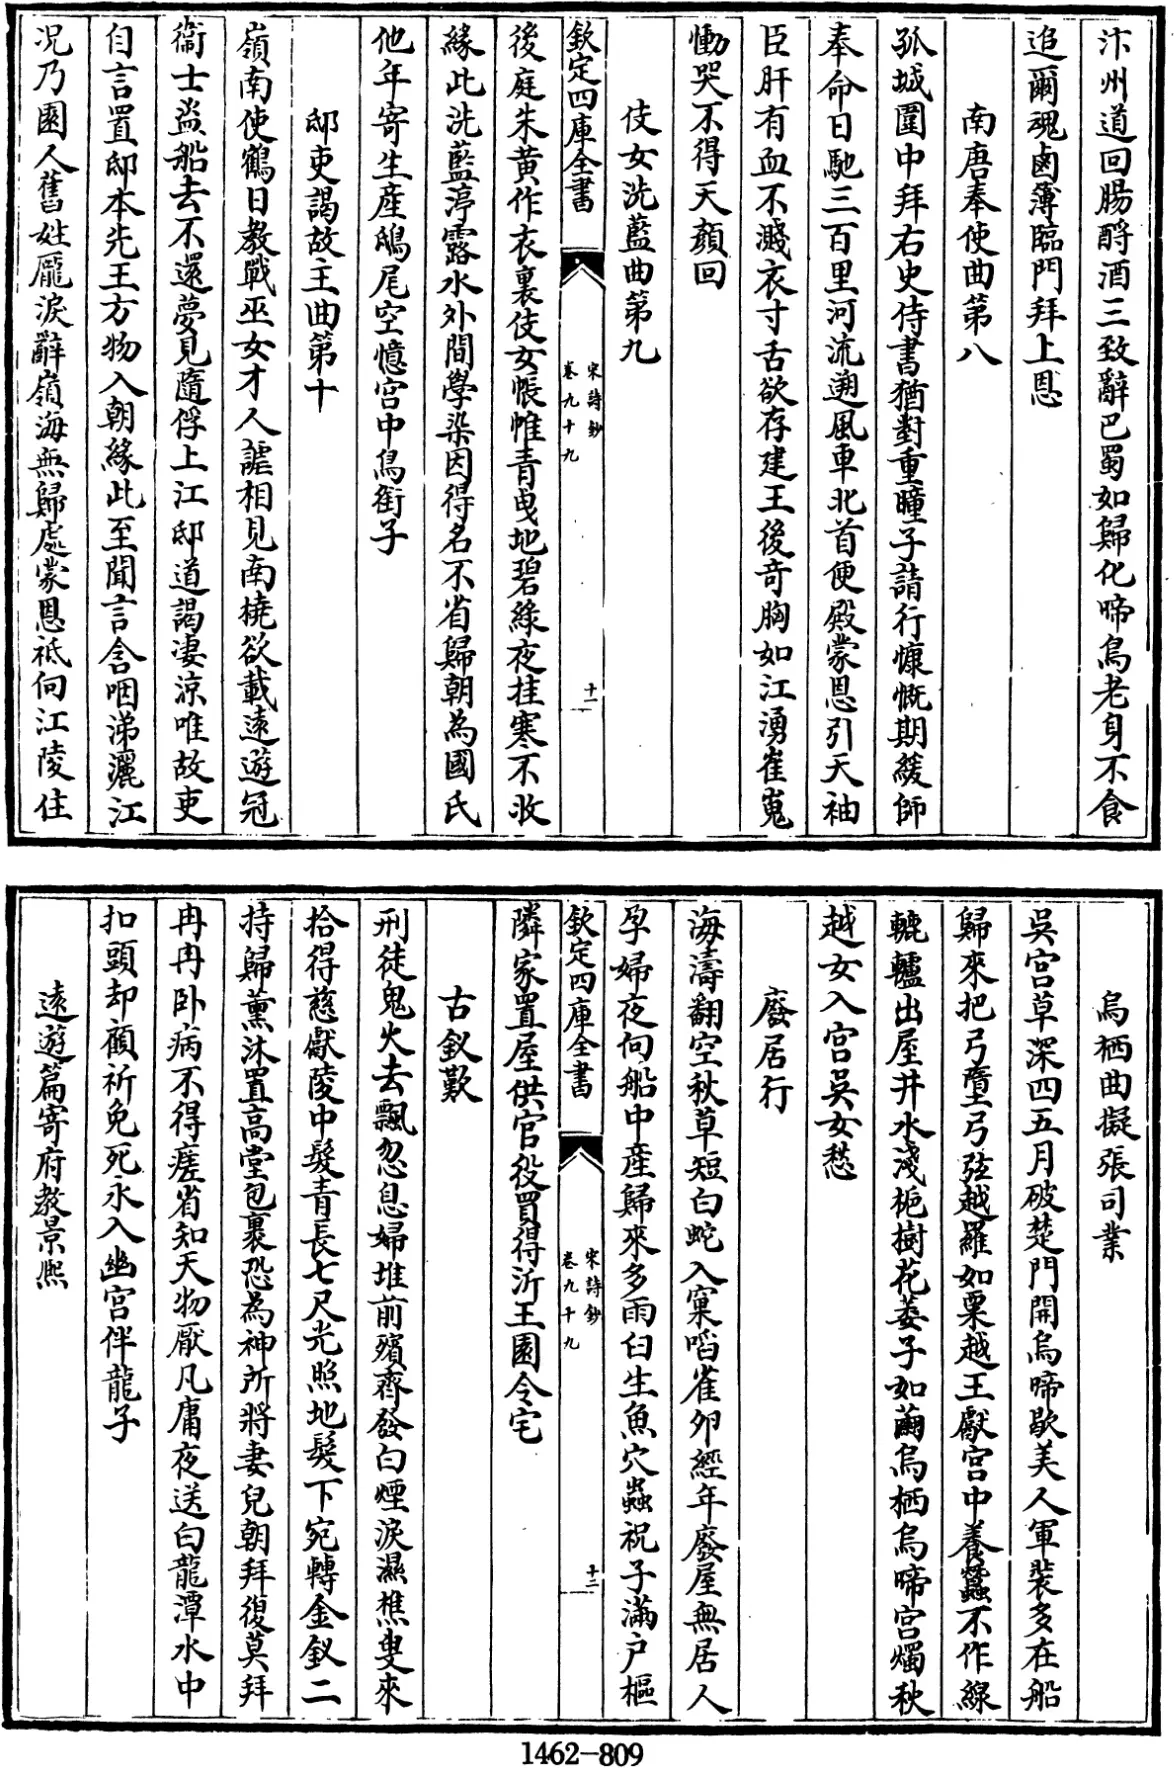 汴州道回腸酹酒三致辭巴蜀如歸化啼鳥老身不食
追爾魂鹵簿臨門拜上恩
南唐奉使曲第八
孤城圍中拜右史侍書猶對重瞳子請行慷慨期緩師
奉命日馳三百里河流遡風車北首便殿蒙恩引天袖
臣肝有血不濺衣寸舌欲存建王後奇胸如江湧崔嵬
慟哭不得天顏回
伎女洗藍曲第九
欽定四庫全書
宋詩鈔
卷九十九
十一
後庭朱黄作衣裏伎女帳帷青曳地碧絲夜挂寒不收
緣此洗藍渟露水外間學染因得名不省歸朝為國氏
他年寄生産鴟尾空憶宫中鳥銜子
邸吏謁故王曲第十
嶺南使鶴日教戰巫女才人謔相見南橈欲載遠遊冠
衛士盜船去不還夢見隨俘上江邸道謁淒涼唯故吏
自言置邸本先王方物入朝緣此至聞言含咽涕灑江
况乃園人舊姓龎淚辭嶺海無歸處蒙恩祗向江陵住
烏栖曲擬張司業
吳宫草深四五月破楚門開烏啼歇美人軍裝多在船
歸來把弓墮弓弦越羅如粟越王獻宫中養蠶不作線
轆轤出屋井水淺梔樹花萎子如繭烏栖烏啼宫燭秋
越女入宫吳女愁
廢居行
海濤翻空秋草短白蛇入窠啗雀卵經年廢屋無居人
孕婦夜向船中産歸來多雨臼生魚穴蟲祝子滿户樞
欽定四庫全書
宋詩鈔
卷九十九
十二
隣家置屋供官役買得沂王園令宅
古釵歎
刑徒鬼火去飄忽息婦堆前殯齊發白煙淚濕樵叟來
拾得慈獻陵中髮青長七尺光照地髮下宛轉金釵二
持歸薰沐置高堂包裹恐為神所將妻兒朝拜復莫拜
冉冉卧病不得瘥省知天物厭凡庸夜送白龍潭水中
扣頭却顧祈免死永入幽宫伴龍子
遠遊篇寄府教景熙
1462-809